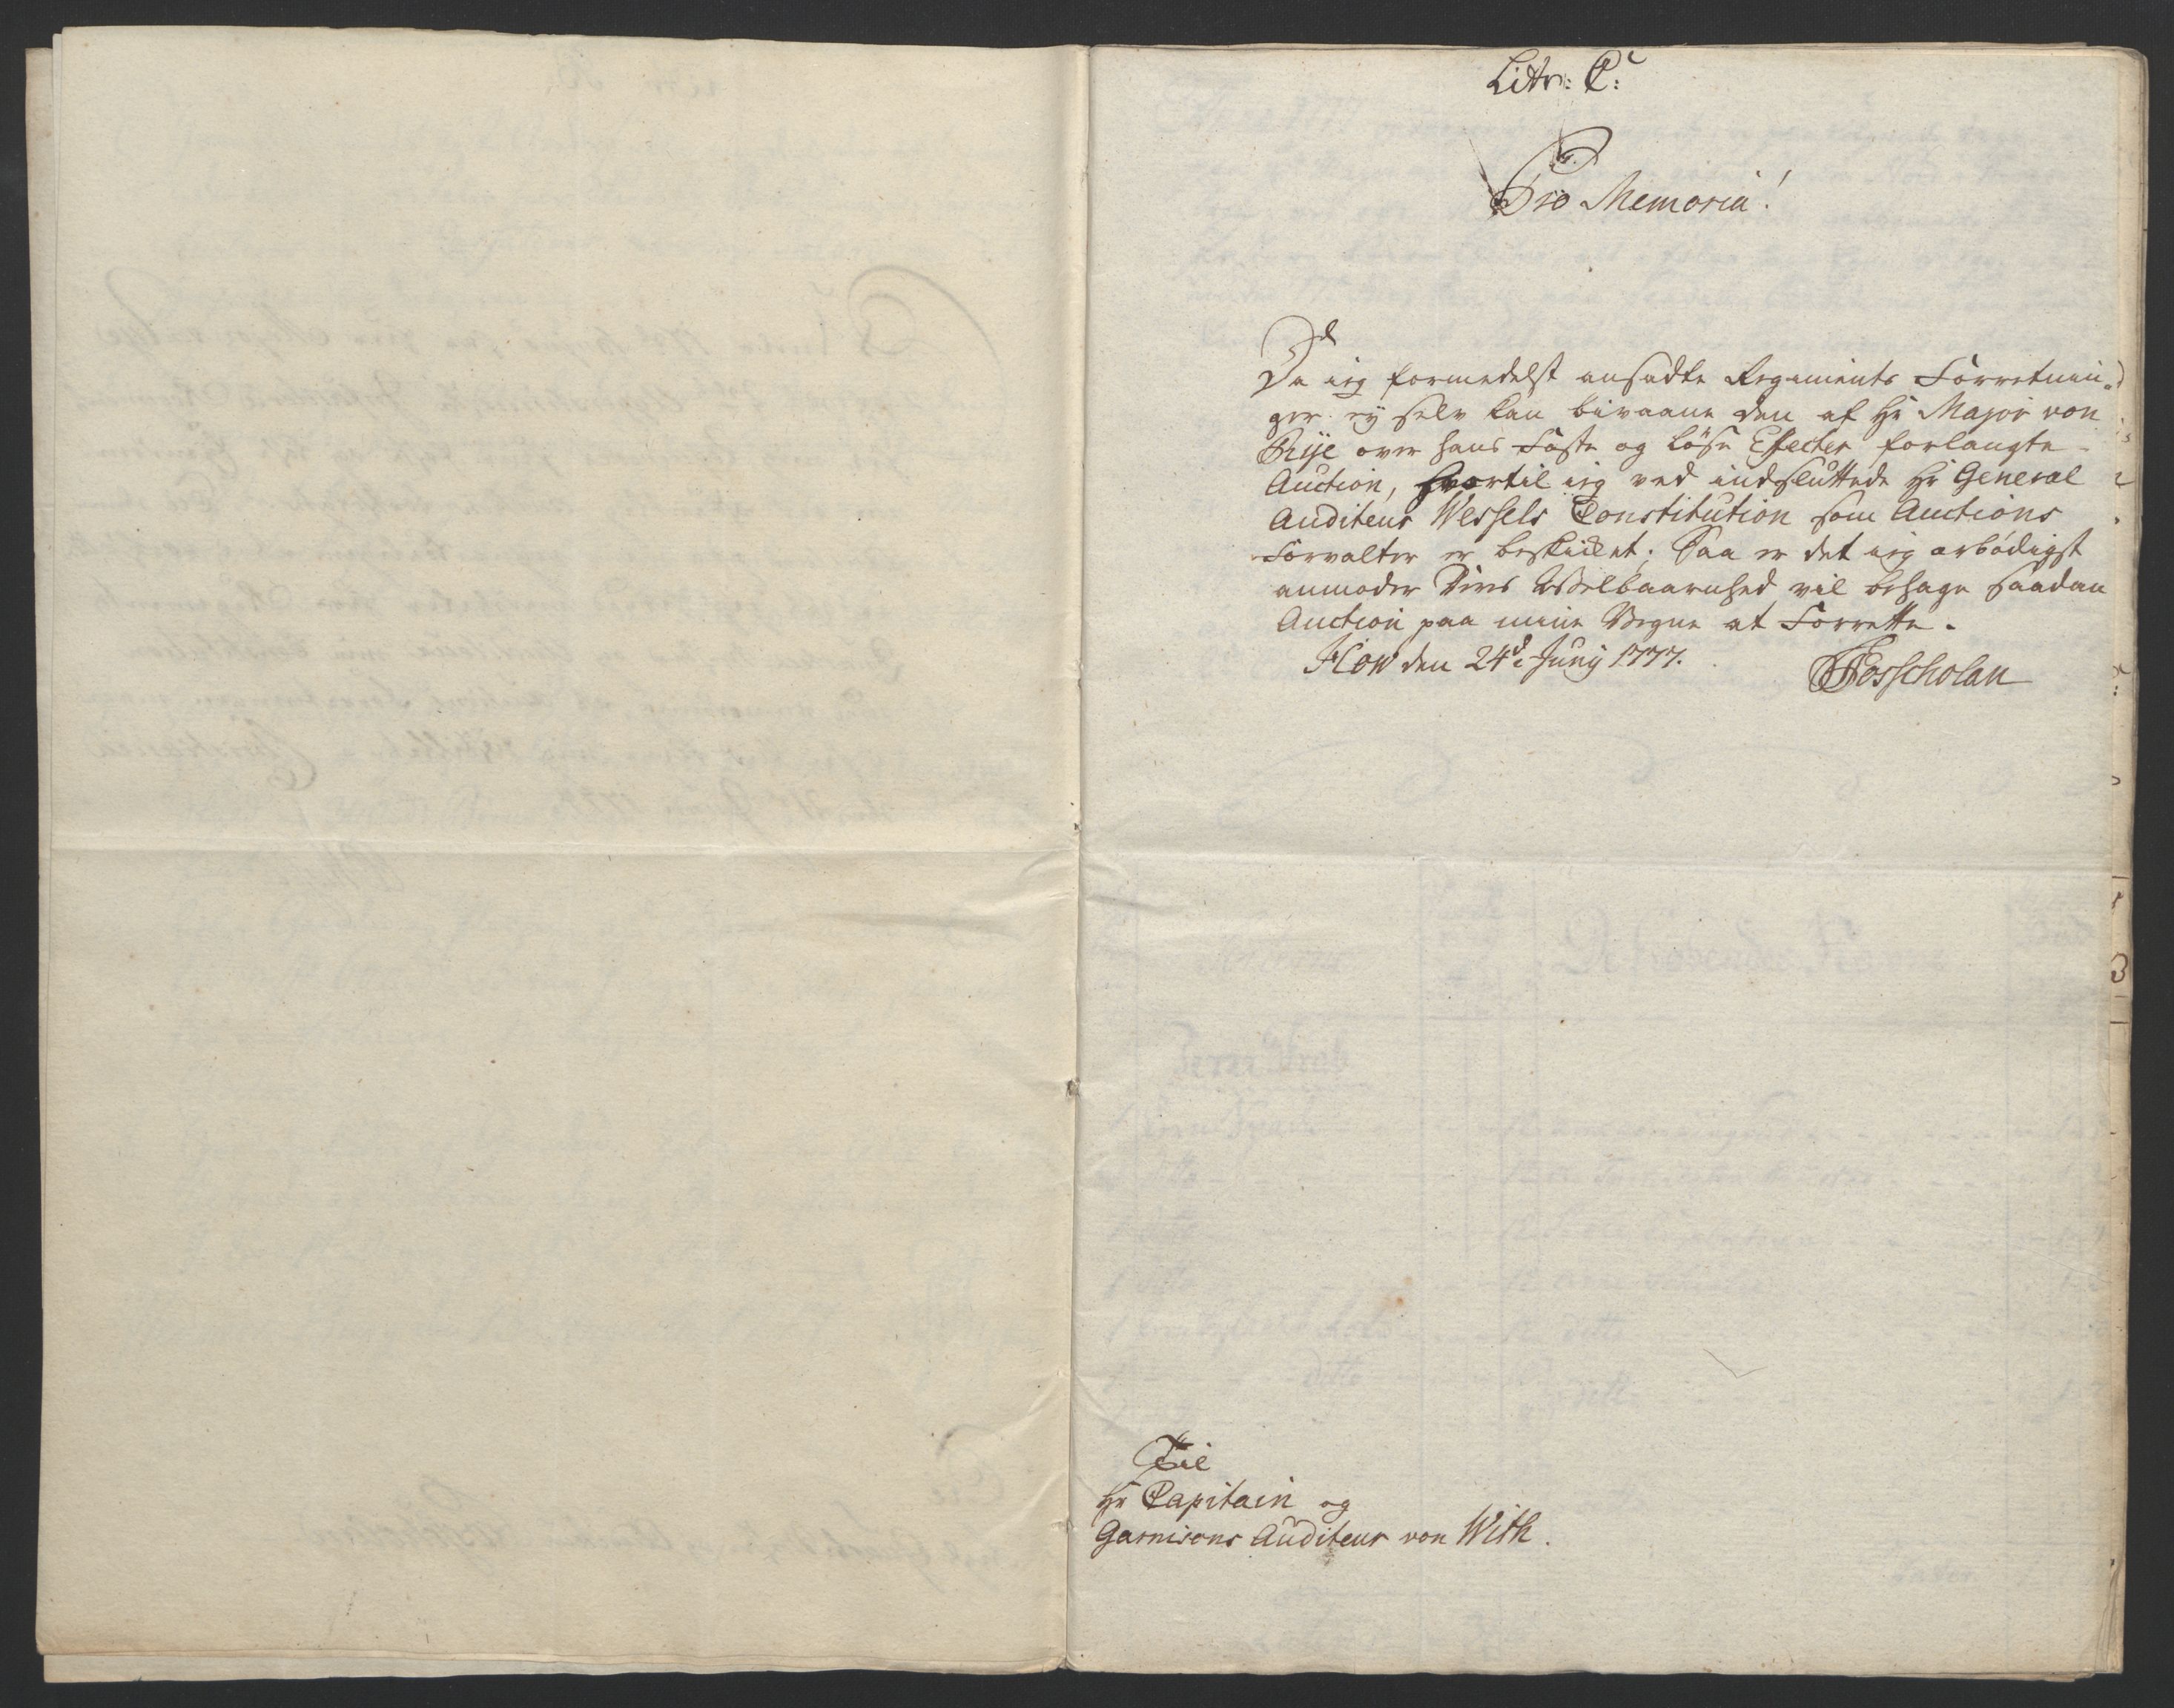 Littr: C:
Pro Memoria!
Da jeg formedelst anhadte Regiments Forretnin-
ger ey selv kan bivaane den af Hr Major von
Rije over hans Faste og Løse Effecter forlangte
Auction, hvortil jeg ved indsluttede Hr General
Auditeur Wessels Constitution som Auctions
Forvalter er beskikket; Saa er det jeg ærbødigst
anmoder Deres Welbaarnhed vil behage saadan
Auction paa mine Vegne at Forrette.
How den 24de Junij 1777.
Fosscholan
Til
Hr Capitain og
Garnisons Auditeur von With.